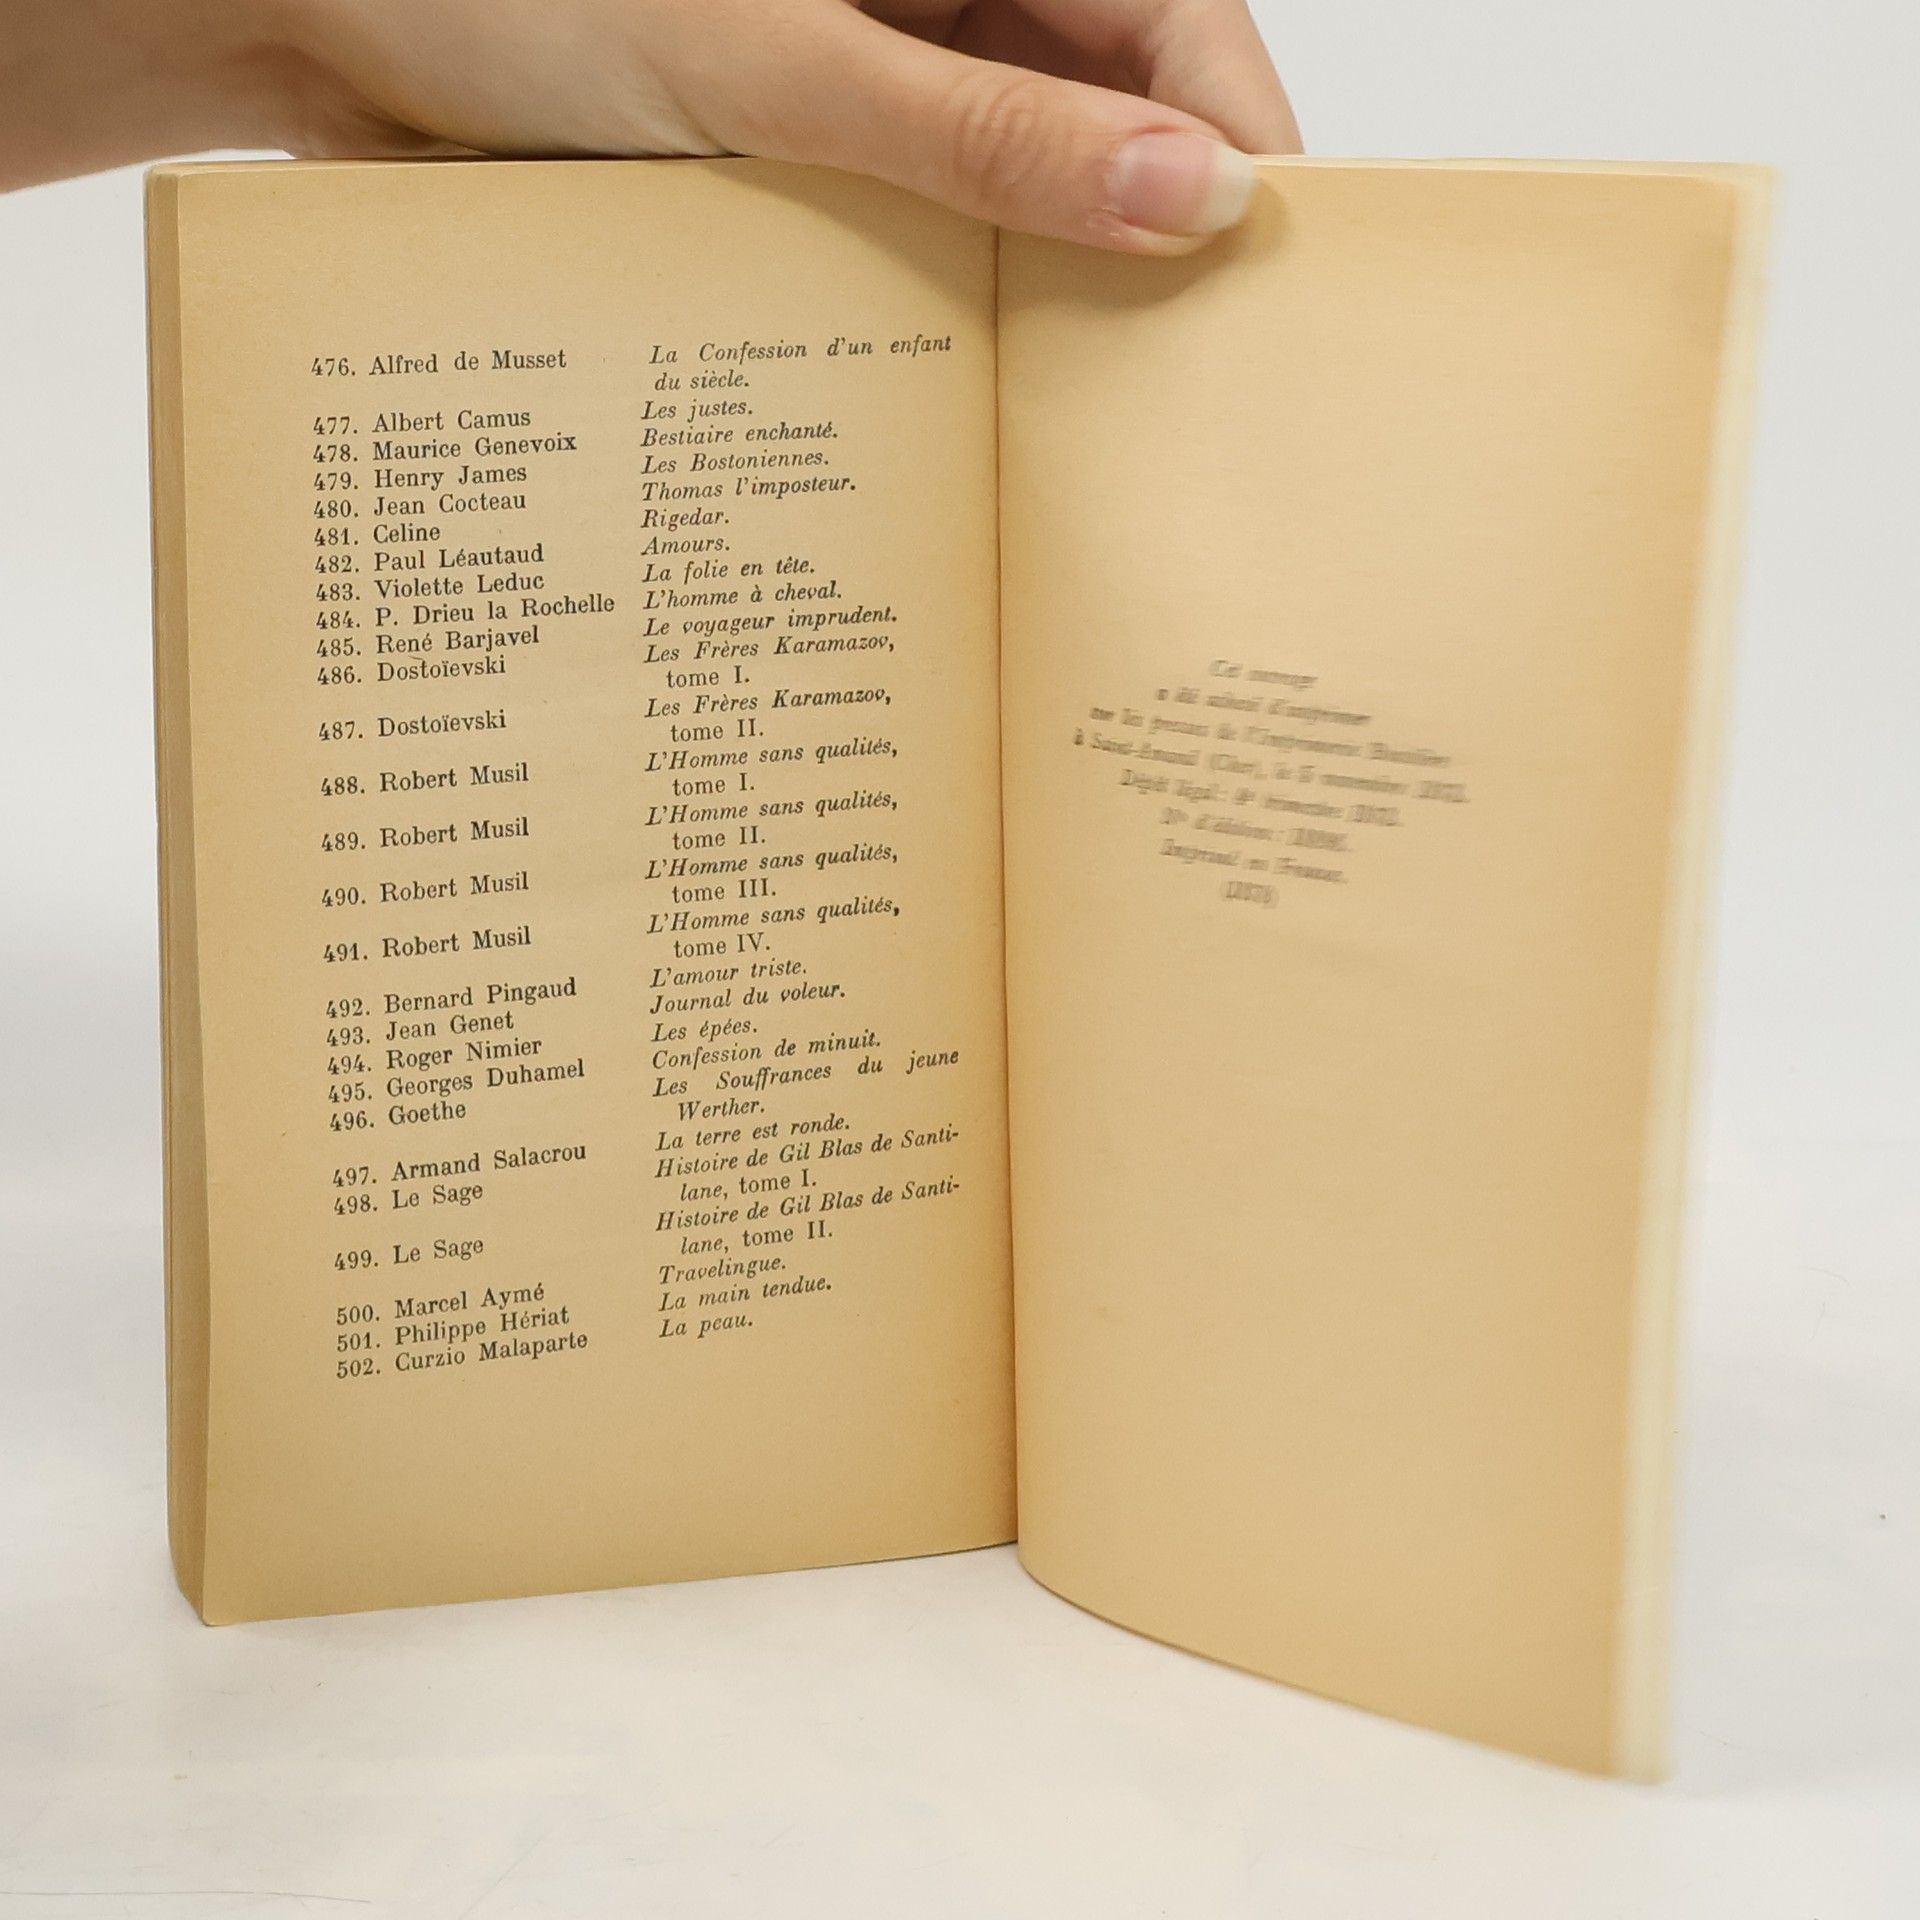 476. Alfred de Musset La Confession d'un enfant
du siècle.
477. Albert Camus Les justes.
478. Maurice Genevoix Bestiaire enchanté.
479. Henry James Les Bostoniennes.
480. Jean Cocteau Thomas l'imposteur.
481. Celine Rigedar.
482. Paul Léautaud Amours.
483. Violette Leduc La folie en tête.
484. P. Drieu la Rochelle L'homme à cheval.
485. René Barjavel Le voyageur imprudent.
486. Dostoïevski Les Frères Karamazov,
tome I.
487. Dostoïevski Les Frères Karamazov,
tome II.
488. Robert Musil L'Homme sans qualités,
tome I.
489. Robert Musil L'Homme sans qualités,
tome II.
490. Robert Musil L'Homme sans qualités,
tome III.
491. Robert Musil L'Homme sans qualités,
tome IV.
492. Bernard Pingaud L'amour triste.
493. Jean Genet Journal du voleur.
494. Roger Nimier Les épées.
495. Georges Duhamel Confession de minuit.
496. Goethe Les Souffrances du jeune
Werther.
497. Armand Salacrou La terre est ronde.
498. Le Sage Histoire de Gil Blas de Santi-
lane, tome I.
499. Le Sage Histoire de Gil Blas de Santi-
lane, tome II.
500. Marcel Aymé Travelingue.
501. Philippe Hériat La main tendue.
502. Curzio Malaparte La peau.
Cet ouvrage
a été achevé d'imprimer
sur les presses de l'Imprimerie Bussière
à Saint-Amand (Cher), le
Dépôt légal : trimestre
N° d'édition :
Imprimé en France.